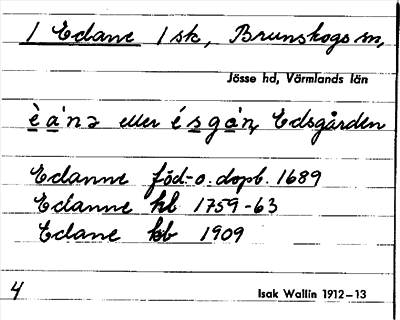 1 Edane 1 sk, Brunskogs sn,
Jösse hd, Värmlands län
è á'nə eller é s gå'n, Edsgården
Edanne föd- o. dopb. 1689
Edanne hb 1759-63
Edane kb 1909
4 Isak Wallin 1912–13